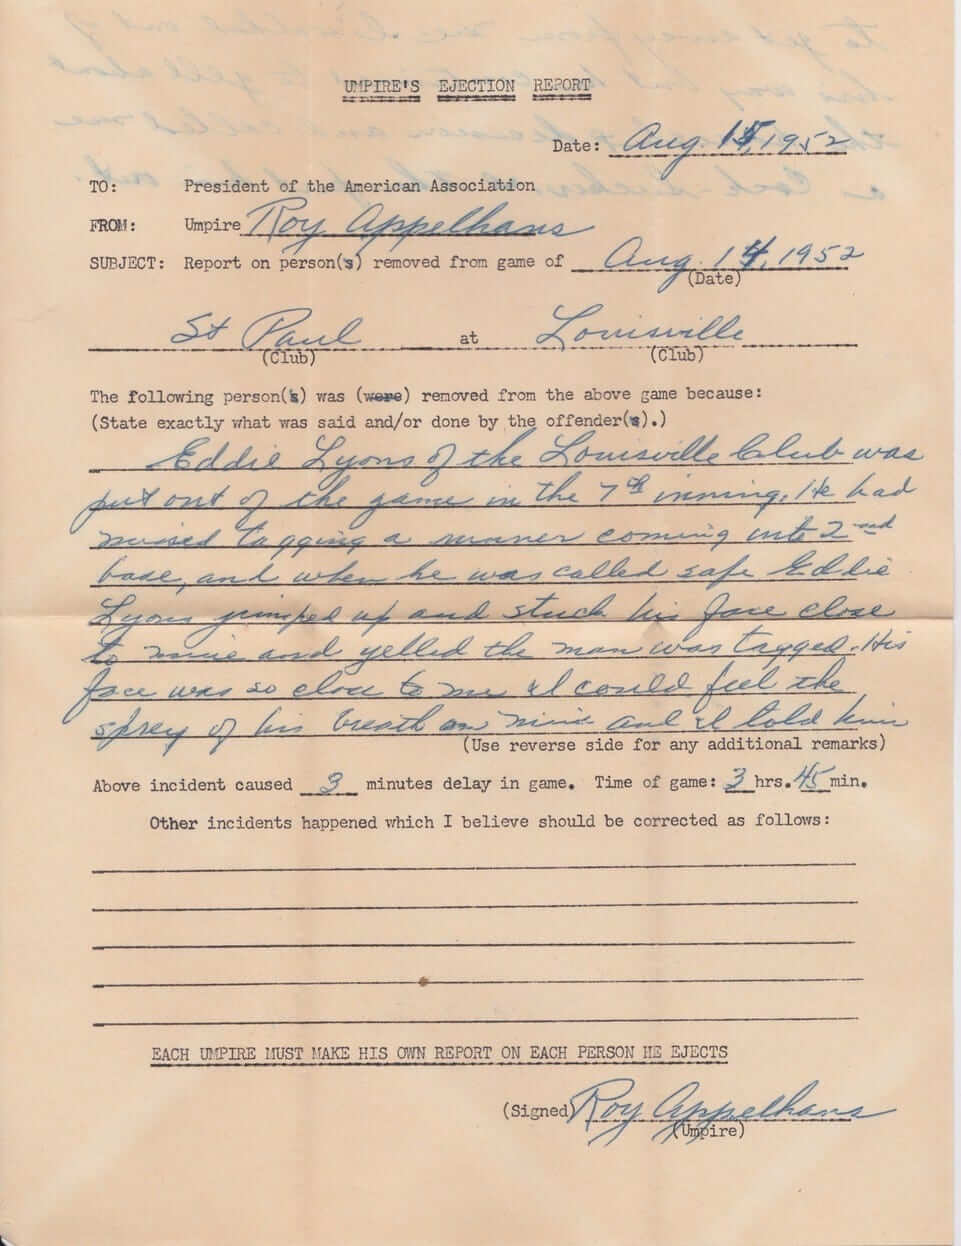 UMPIRE'S EJECTION REPORT
Date: Aug. 15, 1952
TO: President of the American Association
FROM: Umpire Roy Appelhans
SUBJECT: Report on person(s) removed from game of Aug. 14, 1952
(Date)
St Paul at Louisville
(Club) (Club)
The following person(s) was (were) removed from the above game because:
(State exactly what was said and/or done by the offender(s).)
Eddie Lyons of the Louisville Club was
put out of the game in the 7th inning. He had
missed tagging a runner coming into 2nd
base, and when he was called safe Eddie
Lyons jumped up and stuck his face close
to mine and yelled the man was tagged. His
face was so close to me I could feel the
sprey of his breath on mine and I told him
(Use reverse side for any additional remarks)
Above incident caused 3 minutes delay in game. Time of game: 3 hrs. 45 min.
Other incidents happened which I believe should be corrected as follows:
EACH UMPIRE MUST MAKE HIS OWN REPORT ON EACH PERSON HE EJECTS
(Signed) Roy Appelhans
(Umpire)